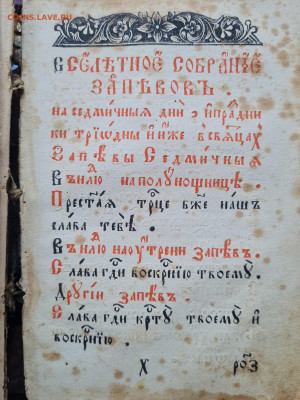 coins.lave.ru
всѐлѣтное собранїе
запѣвовъ.
на седми́чныя дни̑, и҆ пра́здни
ки трїѡ́дны и҆ и҆́же въ свѧ́цахъ
Запѣвы Седмичныя
В нлю на полунощницѣ.
Прест҃ая трц҃е бж҃е нашъ
слава тебѣ.
В нлю на оутрени запѣвъ.
Слава гд҃и воскр҃нїю твоему.
Другїи запѣвъ.
Слава гд҃и крт҃у твоему и
воскр҃нїю.
Х